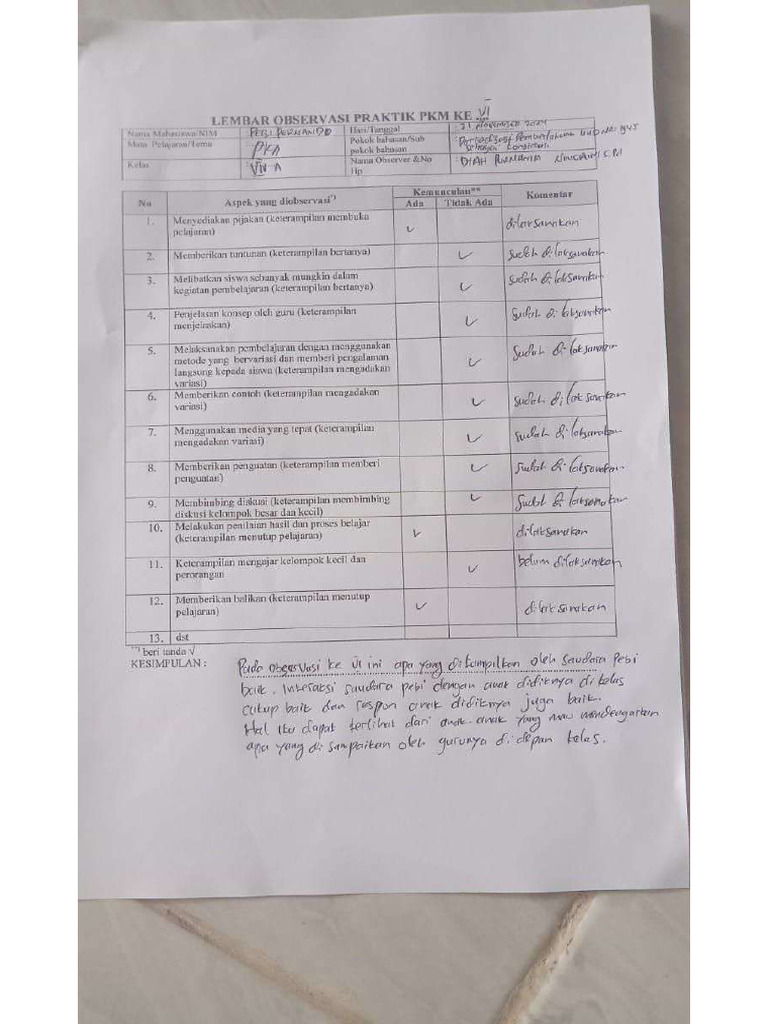 LEMBAR OBSERVASI PRAKTIK PKM KE VI
Nama Mahasiswa/NIM : PEBI PERMANDO Hari/Tanggal : 21 November 2024
Mata Pelajaran/Tema : PKN Pokok bahasan/Sub pokok bahasan
Kelas : VII A Nama Observer &No Hp : DIAH S.Pd
No Aspek yang diobservasi*) Kemunculan** Komentar
Ada Tidak Ada
1. Menyediakan pijakan (keterampilan membuka pelajaran) √ dilaksanakan
2. Memberikan tuntunan (keterampilan bertanya) √ sudah dilaksanakan
3. Melibatkan siswa sebanyak mungkin dalam kegiatan pembelajaran (keterampilan bertanya) √ sudah dilaksanakan
4. Penjelasan konsep oleh guru (keterampilan menjelaskan) √ sudah dilaksanakan
5. Melaksanakan pembelajaran dengan menggunakan metode yang bervariasi dan memberi pengalaman langsung kepada siswa (keterampilan mengadakan variasi) √ sudah dilaksanakan
6. Memberikan contoh (keterampilan mengadakan variasi) √ sudah dilaksanakan
7. Menggunakan media yang tepat (keterampilan mengadakan variasi) √ sudah dilaksanakan
8. Memberikan penguatan (keterampilan memberi penguatan) √ sudah dilaksanakan
9. Membimbing diskusi (keterampilan membimbing diskusi kelompok besar dan kecil) √ sudah dilaksanakan
10. Melakukan penilaian hasil dan proses belajar (keterampilan menutup pelajaran) √ dilaksanakan
11. Keterampilan mengajar kelompok kecil dan perorangan √ belum dilaksanakan
12. Memberikan balikan (keterampilan menutup pelajaran) √ dilaksanakan
13. dst
**) beri tanda √
KESIMPULAN : Pada observasi ke VI ini apa yang ditampilkan oleh saudara Pebi
baik. Interaksi saudara pebi dengan anak didiknya di kelas
cukup baik dan respon anak didiknya juga baik.
Hal itu dapat terlihat dari anak-anak yang mau mendengarkan
apa yang di sampaikan oleh gurunya di depan kelas.